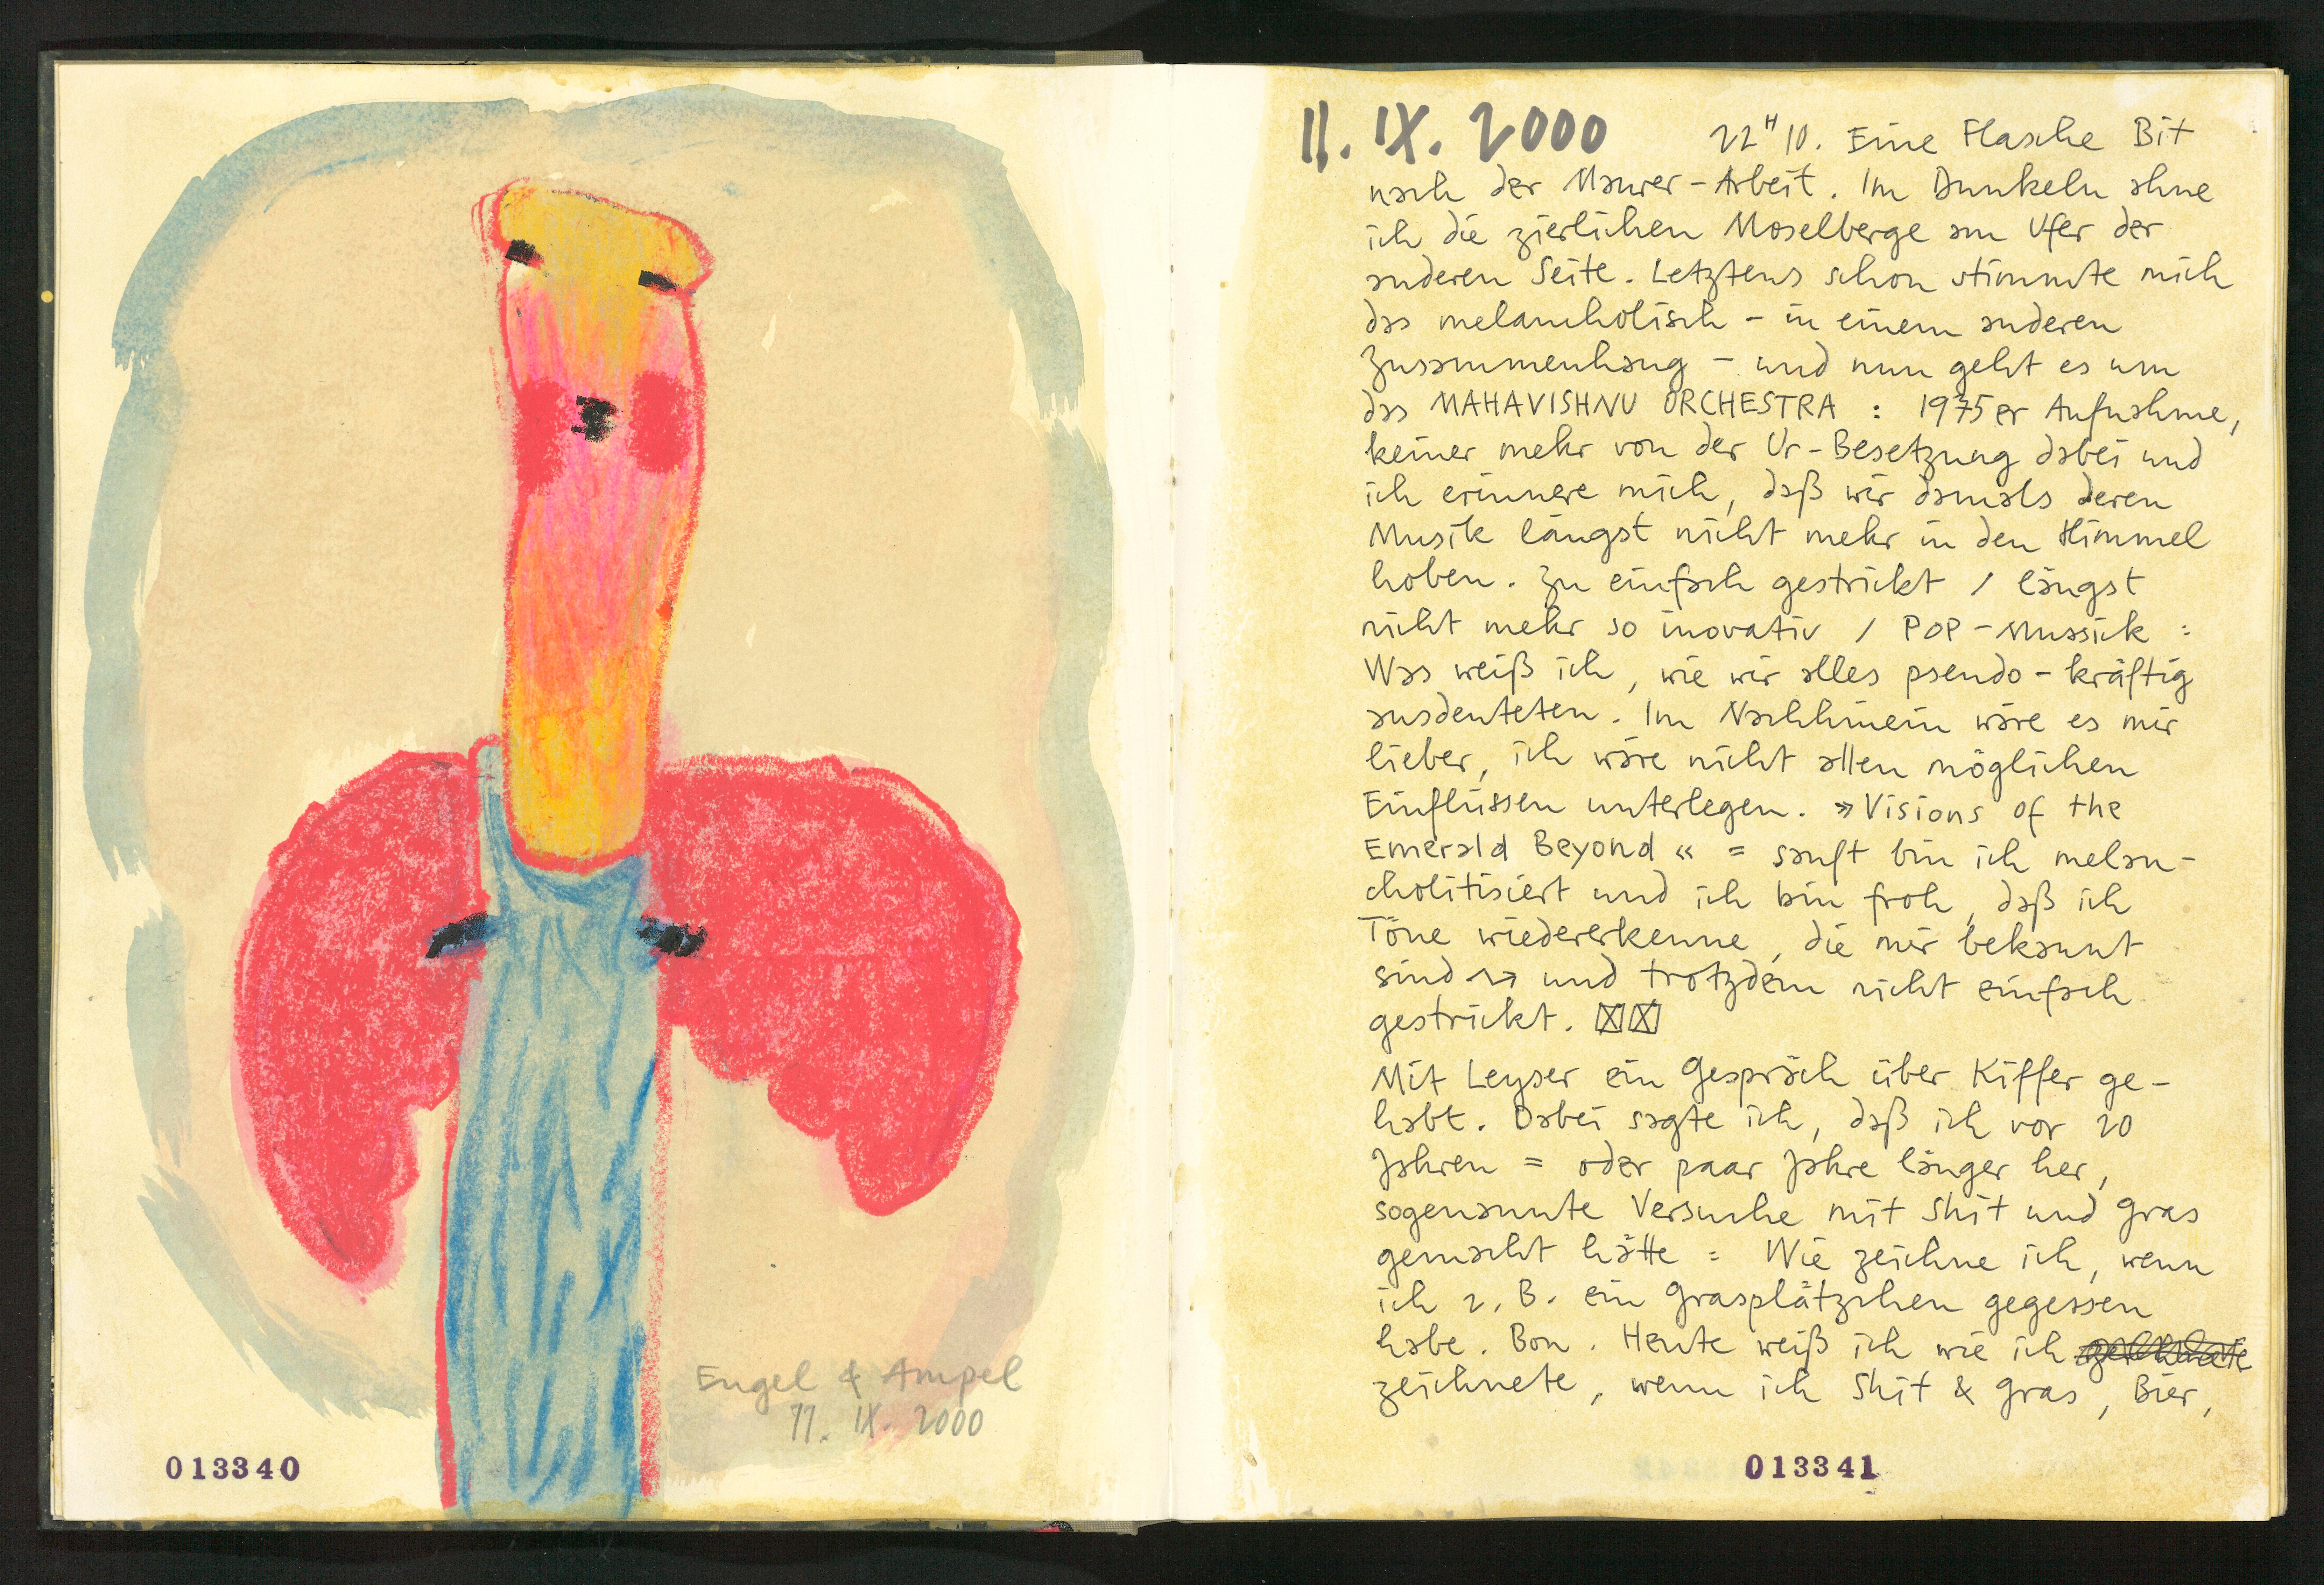 Engel & Ampel
11. IX. 2000
013340
11. IX. 2000 22ᴴ10. Eine Flasche Bit
nach der Maurer-Arbeit. Im Dunkeln ahne
ich die zierlichen Moselberge am Ufer der
anderen Seite. Letztens schon stimmte mich
das melancholisch - in einem anderen
Zusammenhang - und nun geht es um
das MAHAVISHNU ORCHESTRA : 1975er Aufnahme,
keiner mehr von der Ur-Besetzung dabei und
ich erinnere mich, daß wir damals deren
Musik längst nicht mehr in den Himmel
hoben. Zu einfach gestrickt / längst
nicht mehr so inovativ / POP-Mussick =
Was weiß ich, wie wir alles pseudo-kräftig
ausdeuteten. Im Nachhinein wäre es mir
lieber, ich wäre nicht allen möglichen
Einflüssen unterlegen. »Visions of the
Emerald Beyond« = sanft bin ich melan-
cholitisiert und ich bin froh, daß ich
Töne wiedererkenne, die mir bekannt
sind → und trotzdem nicht einfach
gestrickt. ☒☒
Mit Leyser ein Gespräch über Kiffer ge-
habt. Dabei sagte ich, daß ich vor 20
Jahren = oder paar Jahre länger her,
sogenannte Versuche mit Shit und Gras
gemacht hätte = Wie zeichne ich, wenn
ich z. B. ein Grasplätzchen gegessen
habe. Bon. Heute weiß ich wie ich
zeichnete, wenn ich Shit & Gras, Bier,
013341